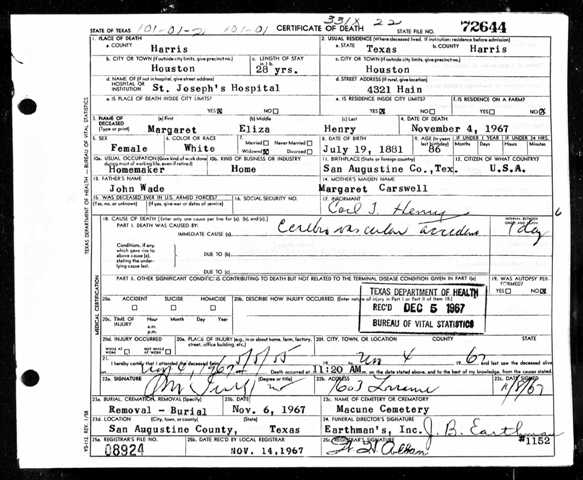 101-01-2 101-01 331X 22
STATE OF TEXAS CERTIFICATE OF DEATH STATE FILE NO. 72644
1. PLACE OF DEATH 2. USUAL RESIDENCE (Where deceased lived. If institution: residence before admission)
a. COUNTY Harris a. STATE Texas b. COUNTY Harris
b. CITY OR TOWN (If outside city limits, give precinct no.) c. LENGTH OF STAY in 1 b. c. CITY OR TOWN (If outside city limits, give precinct no.)
Houston 28 yrs. Houston
d. NAME OF (If not in hospital, give street address) d. STREET ADDRESS (If rural, give location)
HOSPITAL OR INSTITUTION St. Joseph's Hospital 4321 Hain
e. IS PLACE OF DEATH INSIDE CITY LIMITS? e. IS RESIDENCE INSIDE CITY LIMITS? f. IS RESIDENCE ON A FARM?
YES NO YES NO YES NO
3. NAME OF DECEASED (Type or print) (a) First (b) Middle (c) Last 4. DATE OF DEATH
Margaret Eliza Henry November 4, 1967
5. SEX 6. COLOR OR RACE 7. Married Never Married 8. DATE OF BIRTH 9. AGE (In years last birthday) IF UNDER 1 YEAR IF UNDER 24 HRS.
Months Days Hours Minutes
Female White Widowed Divorced July 19, 1881 86
10a. USUAL OCCUPATION (Give kind of work done during most of working life, even if retired) 10b. KIND OF BUSINESS OR INDUSTRY 11. BIRTHPLACE (State or foreign country) 12. CITIZEN OF WHAT COUNTRY?
Homemaker Home San Augustine Co.,Tex. U.S.A.
13. FATHER'S NAME 14. MOTHER'S MAIDEN NAME
John Wade Margaret Carswell
15. WAS DECEASED EVER IN U.S. ARMED FORCES? 16. SOCIAL SECURITY NO. 17. INFORMANT
(Yes, no, or unknown) (If yes, give war or dates of service) Carl J. Henry
18. CAUSE OF DEATH [Enter only one cause per line for (a), (b), and (c).] INTERVAL BETWEEN ONSET AND DEATH
PART I. DEATH WAS CAUSED BY:
IMMEDIATE CAUSE (a) Cerebro vascular accident 1 day
Conditions, if any, which gave rise to above cause (a), stating the underlying cause last.
DUE TO (b)
DUE TO (c)
PART II. OTHER SIGNIFICANT CONDITIONS CONTRIBUTING TO DEATH BUT NOT RELATED TO THE TERMINAL DISEASE CONDITION GIVEN IN PART I(a) 19. WAS AUTOPSY PERFORMED?
YES NO
20a. ACCIDENT SUICIDE HOMICIDE 20b. DESCRIBE HOW INJURY OCCURRED. (Enter nature of injury in Part I or Part II of item 18.)
TEXAS DEPARTMENT OF HEALTH
REC'D DEC 5 1967
BUREAU OF VITAL STATISTICS
20c. TIME OF INJURY Hour Month Day Year
a.m.
p.m.
20d. INJURY OCCURRED 20e. PLACE OF INJURY (e.g., in or about home, farm, factory, street, office building, etc.) 20f. CITY, TOWN, OR LOCATION COUNTY STATE
WHILE AT WORK NOT WHILE AT WORK
21. I hereby certify that I attended the deceased from 5/5/55 19 to Nov 4 19 67 and last saw the deceased alive
on Nov 4, 1967 Death occurred at 11:20 AM. on the date stated above, and to the best of my knowledge, from the causes stated.
22a. SIGNATURE (Degree or title) 22b. ADDRESS 22c. DATE SIGNED
11/8/67
23a. BURIAL, CREMATION, REMOVAL (Specify) 23b. DATE 23c. NAME OF CEMETERY OR CREMATORY
Removal - Burial Nov. 6, 1967 Macune Cemetery
23d. LOCATION (City, town, or county) (State) 24. FUNERAL DIRECTOR'S SIGNATURE
San Augustine County, Texas Earthman's, Inc. J. B. Earthman #1152
25a. REGISTRAR'S FILE NO. 25b. DATE REC'D BY LOCAL REGISTRAR 25c. REGISTRAR'S SIGNATURE
08924 Nov. 14,1967
TEXAS DEPARTMENT OF HEALTH — BUREAU OF VITAL STATISTICS
MEDICAL CERTIFICATION
6